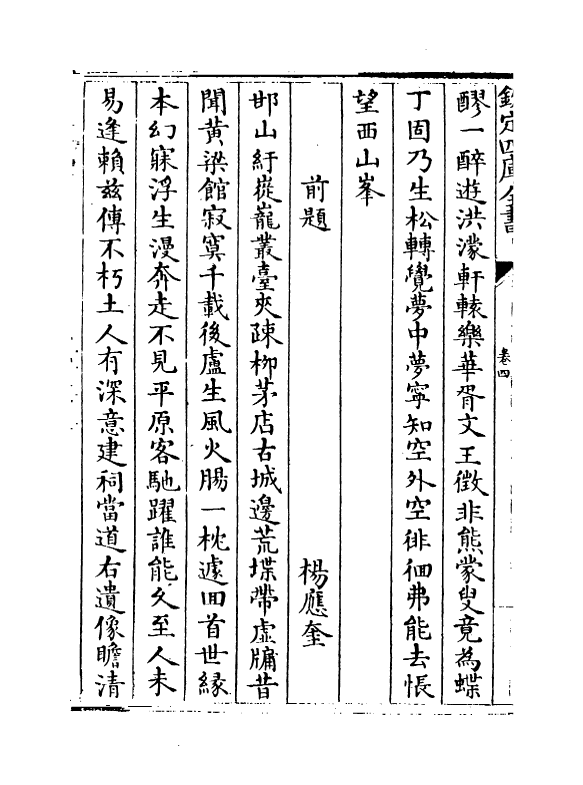 欽定四庫全書
卷四
醪一醉遊洪濛軒轅樂華胥文王徵非熊蒙叟竟為蝶
丁固乃生松轉覺夢中夢寧知空外空徘徊弗能去悵
望西山峯
前題 楊應奎
邯山紆蓯巃叢臺夾疎柳茅店古城邊荒堞帶虛牖昔
聞黃粱館寂寞千載後盧生風火腸一枕遽回首世緣
本幻寐浮生漫奔走不見平原客馳躍誰能久至人未
易逢賴茲傳不朽土人有深意建祠當道右遺像瞻清